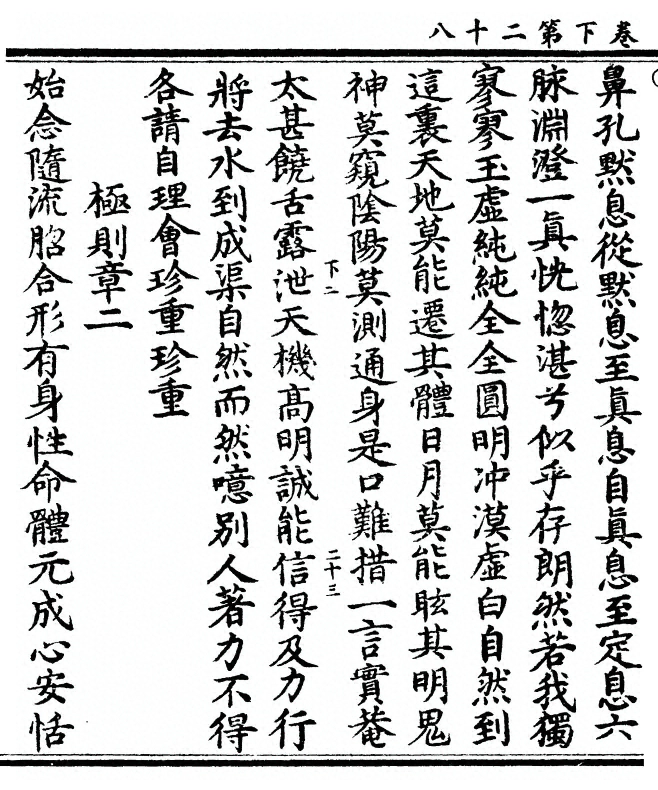 卷下第二十八
鼻孔默息從默息至眞息自眞息至定息六
脉淵澄一眞恍惚湛兮似乎存朗然若我獨
寥寥玉虛純純全全圓明冲漠虛白自然到
這裏天地莫能遷其體日月莫能眩其明鬼
神莫窺陰陽莫測通身是口難措一言實菴
下二
二十三
太甚饒舌露泄天機高明誠能信得及力行
將去水到成渠自然而然噫別人著力不得
各請自理會珍重珍重
極則章二
始念隨流胎合形有身性命體元成心安恬